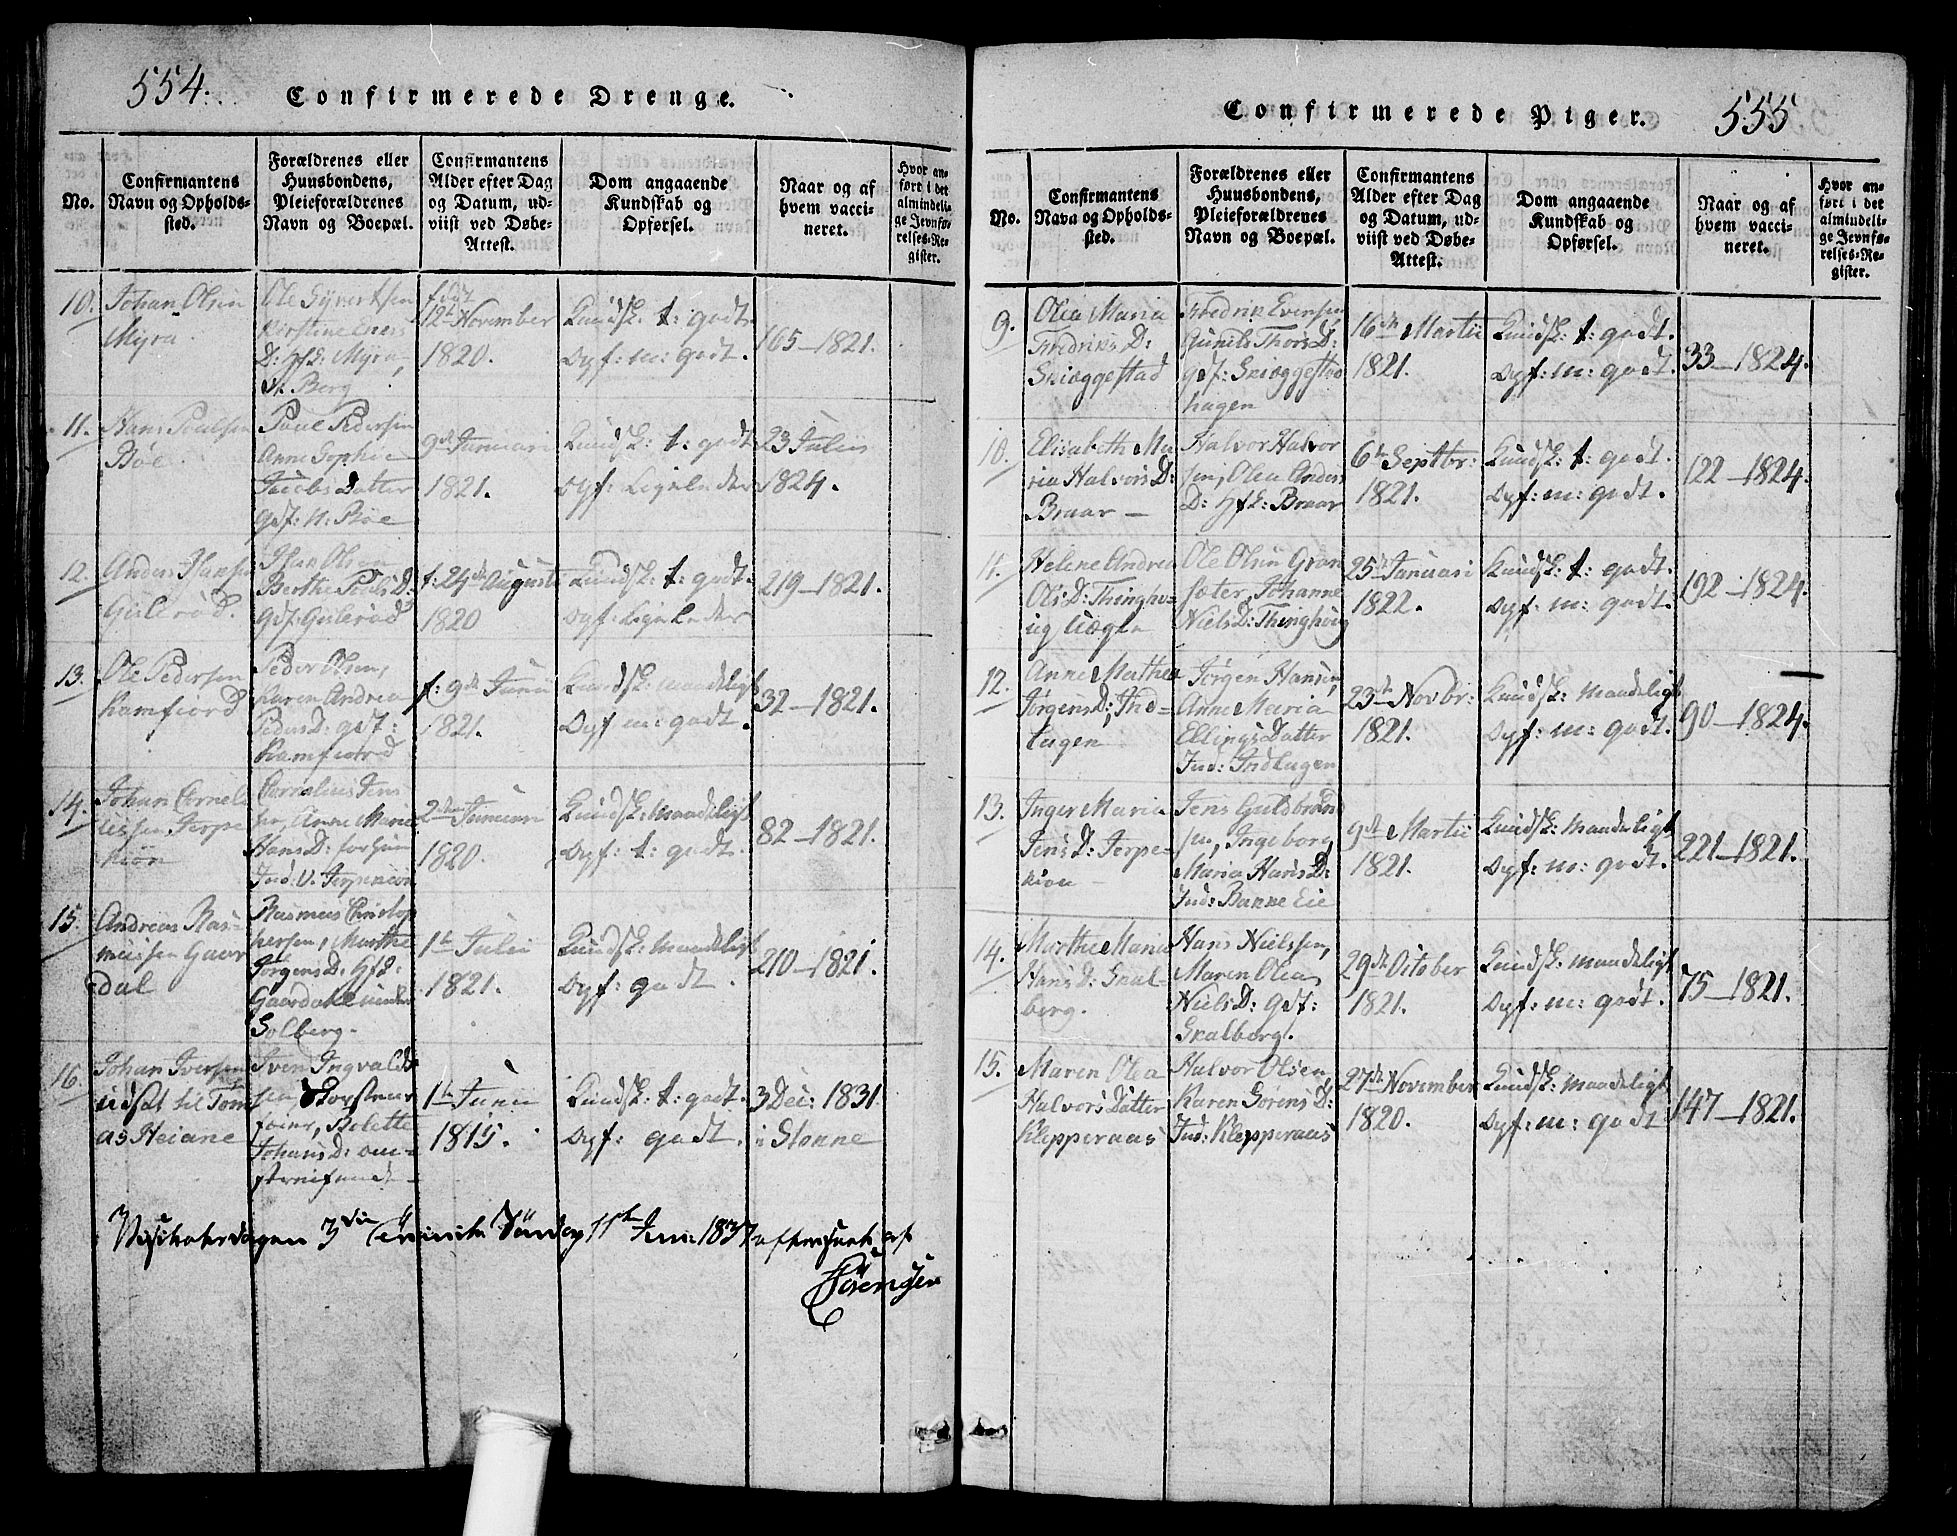 554.
Confirmerede Drenge.
No.
Confirmantens
Navn og Opholds-
sted.
Forældrenes eller
Huusbondens,
Pleieforældrenes
Navn og Boepæl.
Confirmantens
Alder efter Dag
og Datum, ud-
viist ved Døbe-
Attest.
Dom angaaende
Kundskab og
Opførsel.
Naar og af
hvem vacci-
neret.
Hvor an-
ført i det
almindeli-
ge Jevnfø-
relses-Re-
gister.
10.
Johan Olsen
Myra
Ole Syvertsen
Kirstine
D: Hfd: Myra,
N. Berg
født
12te November
1820.
Kundsk: t: godt.
Opf: m: godt.
165-1821.
11.
Hans Poulsen
Böe
Poul Pedersen
Anne Sophie
Jacobs Datter
Gdf: N. Böe
9de Januari
1821.
Kundsk: t: godt
Opf: Ligeledes
23 Julii
1824.
12.
Anders Hansen
Gulerød.
Hans Olsen
Berthe Pouls D:
Gdf: Gulerød
f: 24de Augusti
1820
Kundsk: t: godt.
Opf: Ligeledes
219-1821.
13.
Ole Pedersen
Ramfiord
Peder Olsen,
Karen Andrea
Peders D: gdf:
Ramfiord
f: 9de Junii
1821.
Kundsk: maadeligt
Opf m: godt.
32-1821.
14.
Johan Corneli
ussen Jerpe
kiön
Cornelius Jens
sen, Anne Marie
Hans D:
Ind: V. Jerpekiön
2den Januari
1820.
Kundsk: maadeligt
Opf: t: godt.
82-1821.
15.
Andreas Ras-
mussen Gaar
dal
Rasmus Christop
hersen, Marthe
Jörgens D: Hfd:
Gaardal under
Solberg.
1te Julii
1821.
Kundsk: maadeligt
Opf: godt.
210-1821.
16.
Johan Iversen
udsat til Tom
as Heiane
Iven Ingvalds
sen, Skorsteens
feier, Bolette
Johans D: om-
streifende
1te Junii
1815.
Kundsk: t: godt.
Opf: godt.
3 Dec: 1831
i Stonne
3die Söndag 11te Juni 1837 af
Sörensen
Confirmerede Piger.
555
No.
Confirmantens
Navn og Opholds-
sted.
Forældrenes eller
Huusbondens,
Pleieforældrenes
Navn og Boepæl.
Confirmantens
Alder efter Dag
og Datum, ud-
viist ved Døbe-
Attest.
Dom angaaende
Kundskab og
Opførsel.
Naar og af
hvem vacci-
neret.
Hvor an-
ført i det
almindeli-
ge Jevnfø-
relses-Re-
gister.
9.
Olea Maria
Fredriks D:
Skiæggestad
Fredrik Evensen
Gunild Thors D:
Gdf: Skiæggestad
hagen
16de Martii
1821.
Kundsk: t: godt.
Opf: m: godt.
33-1824.
10.
Elisabeth Ma
ria Halvors D:
Braar -
Halvor Halvor
sen, Olea Anders
D: Hfd: Braar
6te Septbr:
1821.
Kundsk: t: godt.
Opf: m: godt.
122-1824.
11.
Helene Andrea
Ols D: Thingho-
ug
Ole Olsen Gran
Johanne
Niels D: Thinghoug
25de Januari
1822.
Kundsk: t: godt.
Opf: m: godt.
192-1824.
12.
Anne Mathea
Jörgens D: Ind-
lagen
Jörgen Hansen,
Anne Maria
Ellings Datter
Ind: Indlagen
23de Novbr:
1821.
Kundsk: maadeligt
Opf: m: godt.
90-1824.
13.
Inger Maria
Jens D: Jerpe-
kiön -
Jens Guldbrand
sen, Ingeborg
Maria Hans D:
Ind: Bakke Eie
9de Martii
1821.
Kundsk: maadeligt
Opf: m: godt.
221-1821.
14.
Marthe Maria
Hans D: Skal-
berg.
Hans Nielssen,
Maren Olea
Niels D: Gdf:
Skalberg.
29de October
1821.
Kundsk: maadeligt
Opf: m: godt.
75-1821.
15.
Maren Olea
Halvors Datter
Klepperaas
Halvor Olsen
Karen Sörens D:
Ind: Klepperaas
27de November
1820.
Kundsk: maadeligt
Opf: m: godt
147-1821.